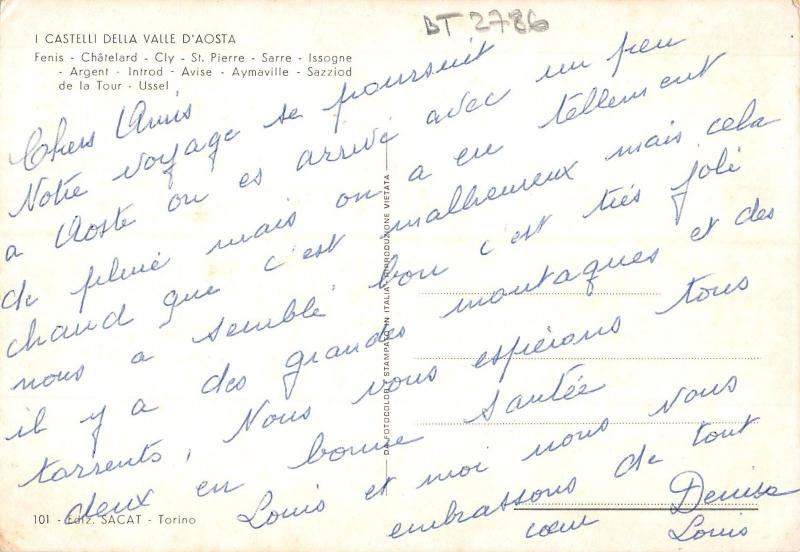 BT 2786
I CASTELLI DELLA VALLE D'AOSTA
Fenis - Châtelard - Cly - St. Pierre - Sarre - Issogne
- Argent - Introd - Avise - Aymaville - Sazziod
de la Tour - Ussel
Chers Amis
Notre voyage se poursuit
a Aoste on es arrivé avec un peu
de pluie mais on a eu tellement
chaud que c'est malheureux mais cela
nous a semblé bon c'est très joli
il y a des grandes montagues et des
torrents, Nous vous espérons tous
deux en bonne santée
Louis et moi nous vous
embrassons de tout
cœur Denise
Louis
DA FOTOCOLOR - STAMPATO IN ITALIA - RIPRODUZIONE VIETATA
101 - Ediz. SACAT - Torino